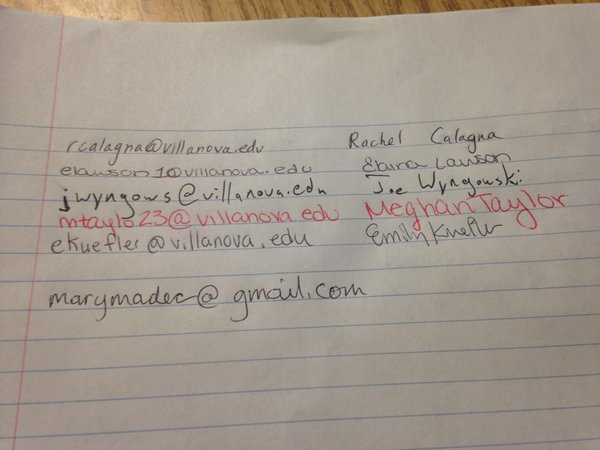 rcalagna@villanova.edu Rachel Calagna
elawson1@villanova.edu Lawson
jwyngows@villanova.edu Joe Wyngowski
mtaylo23@villanova.edu Meghan Taylor
ekuefler@villanova.edu Emily Kuefler
marymadec@gmail.com